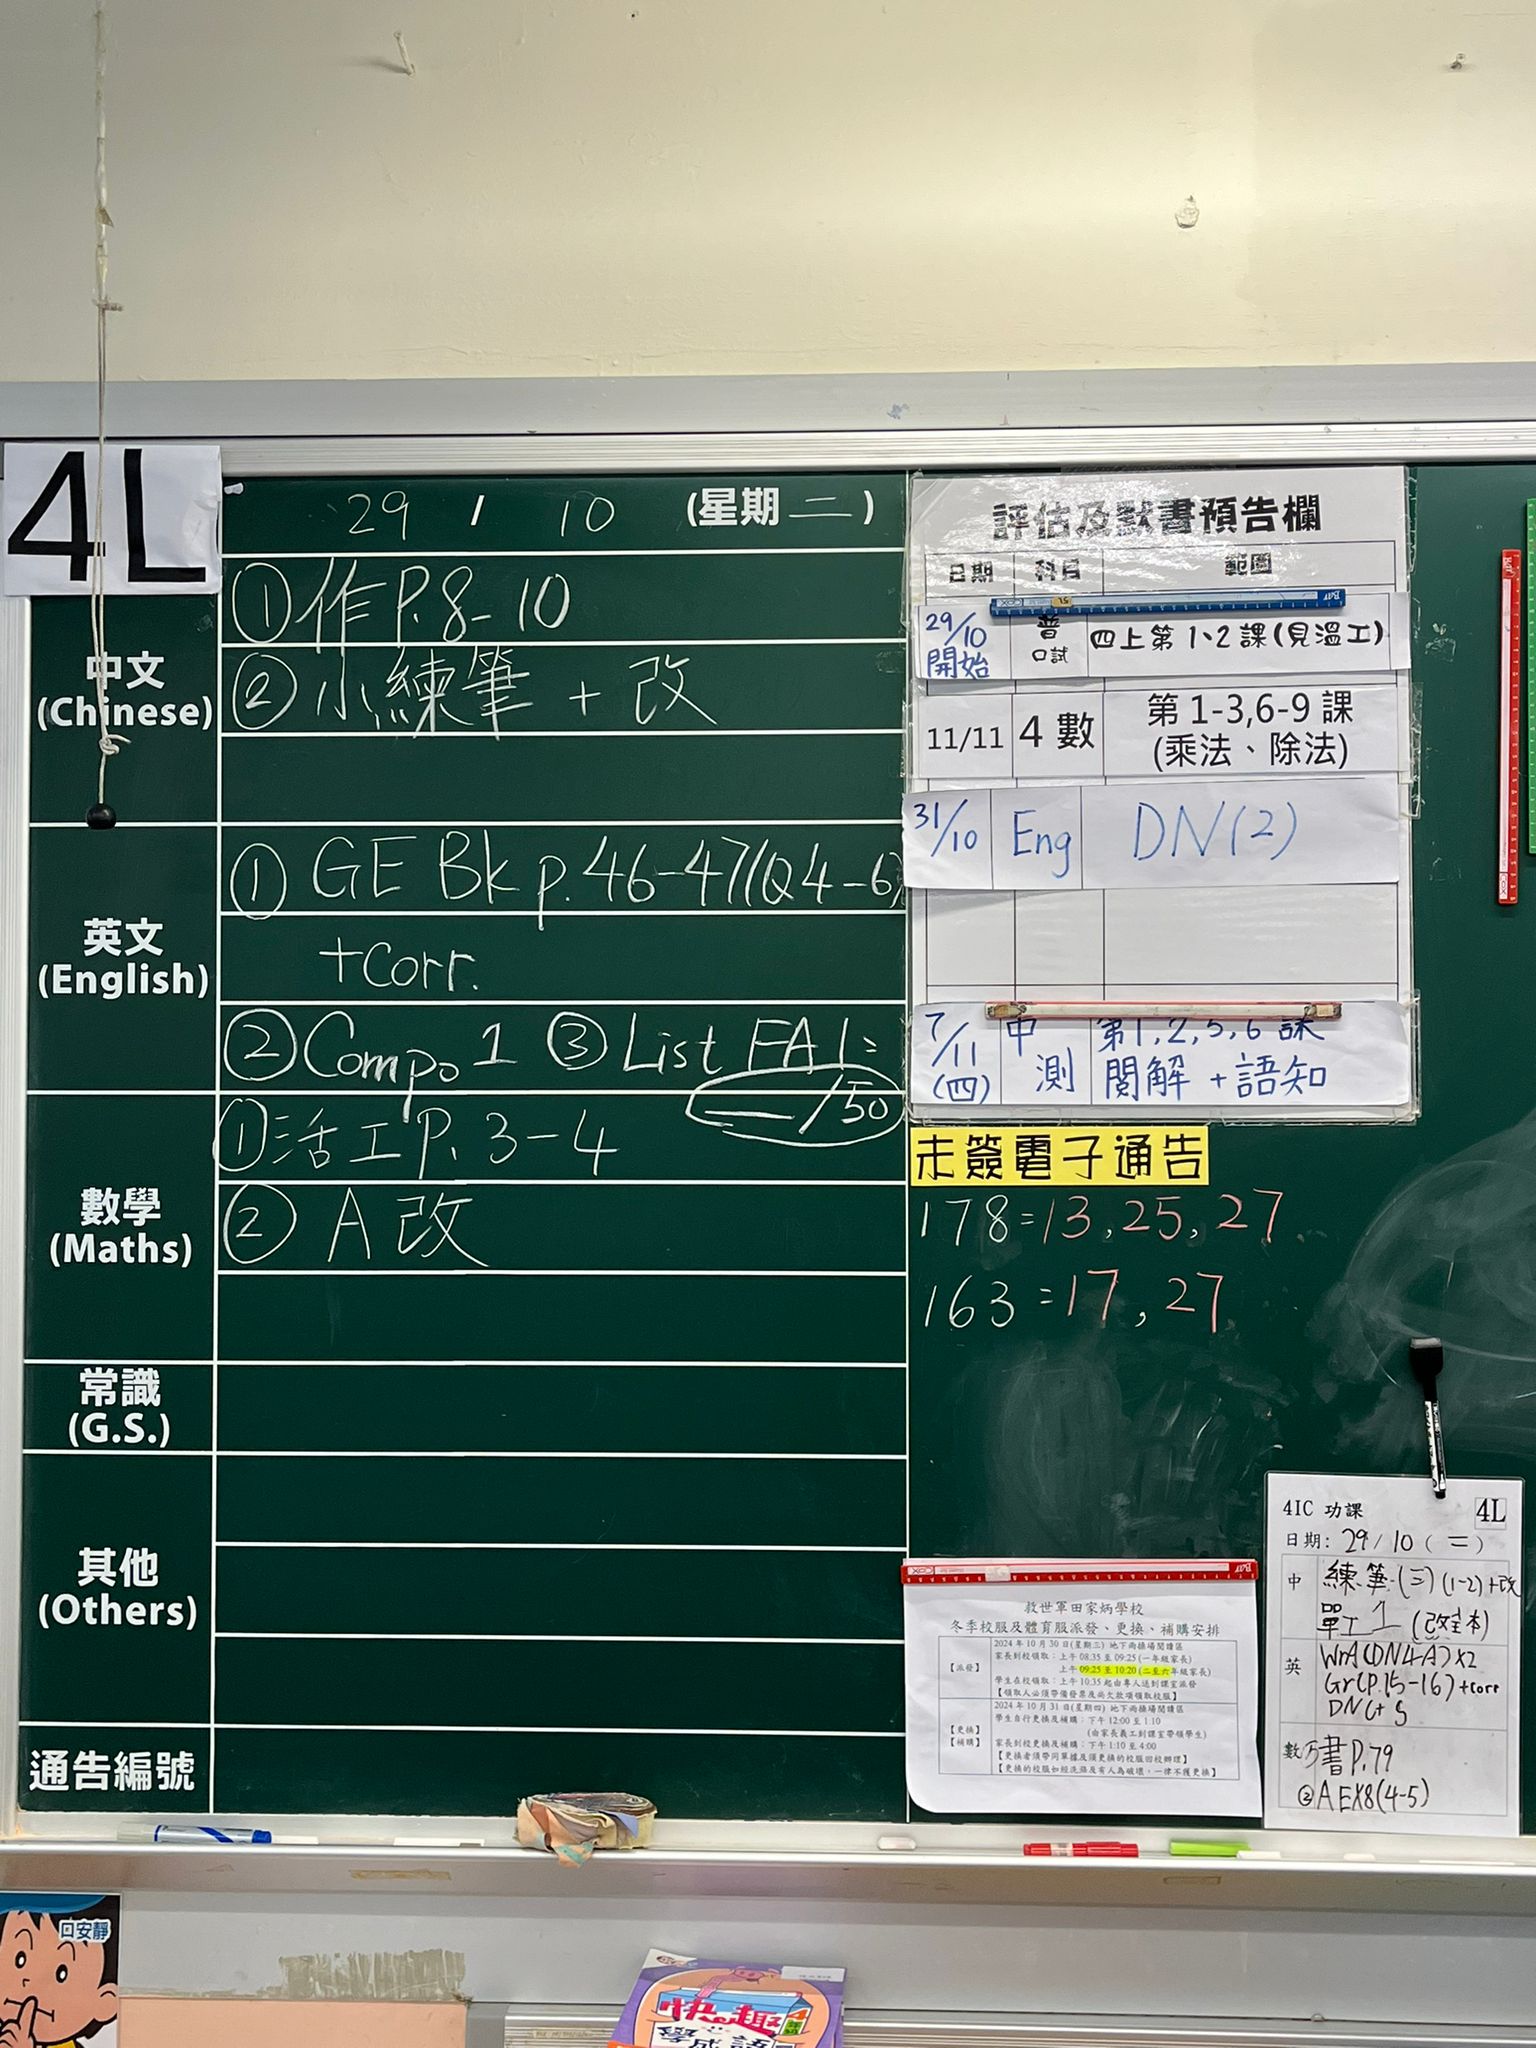 4L
29 / 10 (星期二)
中文
(Chinese)
①作P.8-10
②小練筆 + 改
英文
(English)
① GE Bk p.46-47(Q4-6)
+Corr.
②Compo 1 ③List FA1=
__/50
數學
(Maths)
①活工P.3-4
② A改
常識
(G.S.)
其他
(Others)
通告編號
評估及默書預告欄
日期 科目 範圍
29/10 開始 普 口試 四上第1、2課(見溫工)
11/11 4數 第1-3,6-9課
(乘法、除法)
31/10 Eng DN(2)
7/11 (四) 中測 第1,2,5,6課
閱解+語知
未簽電子通告
178=13,25,27
163=17,27
救世軍田家炳學校
冬季校服及體育服派發、更換、補購安排
【派發】
2024年10月30日(星期三) 地下雨操場閱讀區
家長到校領取:上午 08:35 至 09:25 (一年級家長)
上午 09:25 至 10:20 (二至六年級家長)
學生在校領取:上午 10:35 起由專人送到課室派發
【領取人必須帶備發票及尚欠款項領取校服】
【更換】
【補購】
2024年10月31日(星期四) 地下雨操場閱讀區
學生自行更換及補購:下午 12:00 至 1:10
(由家長義工到課室帶領學生)
家長到校更換及補購:下午 1:10 至 4:00
【更換者須帶同單據及須更換的校服回校辦理】
【更換的校服如經洗滌及有人為破壞,一律不獲更換】
4IC 功課 4L
日期: 29/10 (二)
中 練筆(三)(1-2)+改
單工1 (改)
英 WrA(DN4A)x2
Gr(P.15-16)+corr
數 書P.79
②AEX8(4-5)
口安靜
快趣
學成語